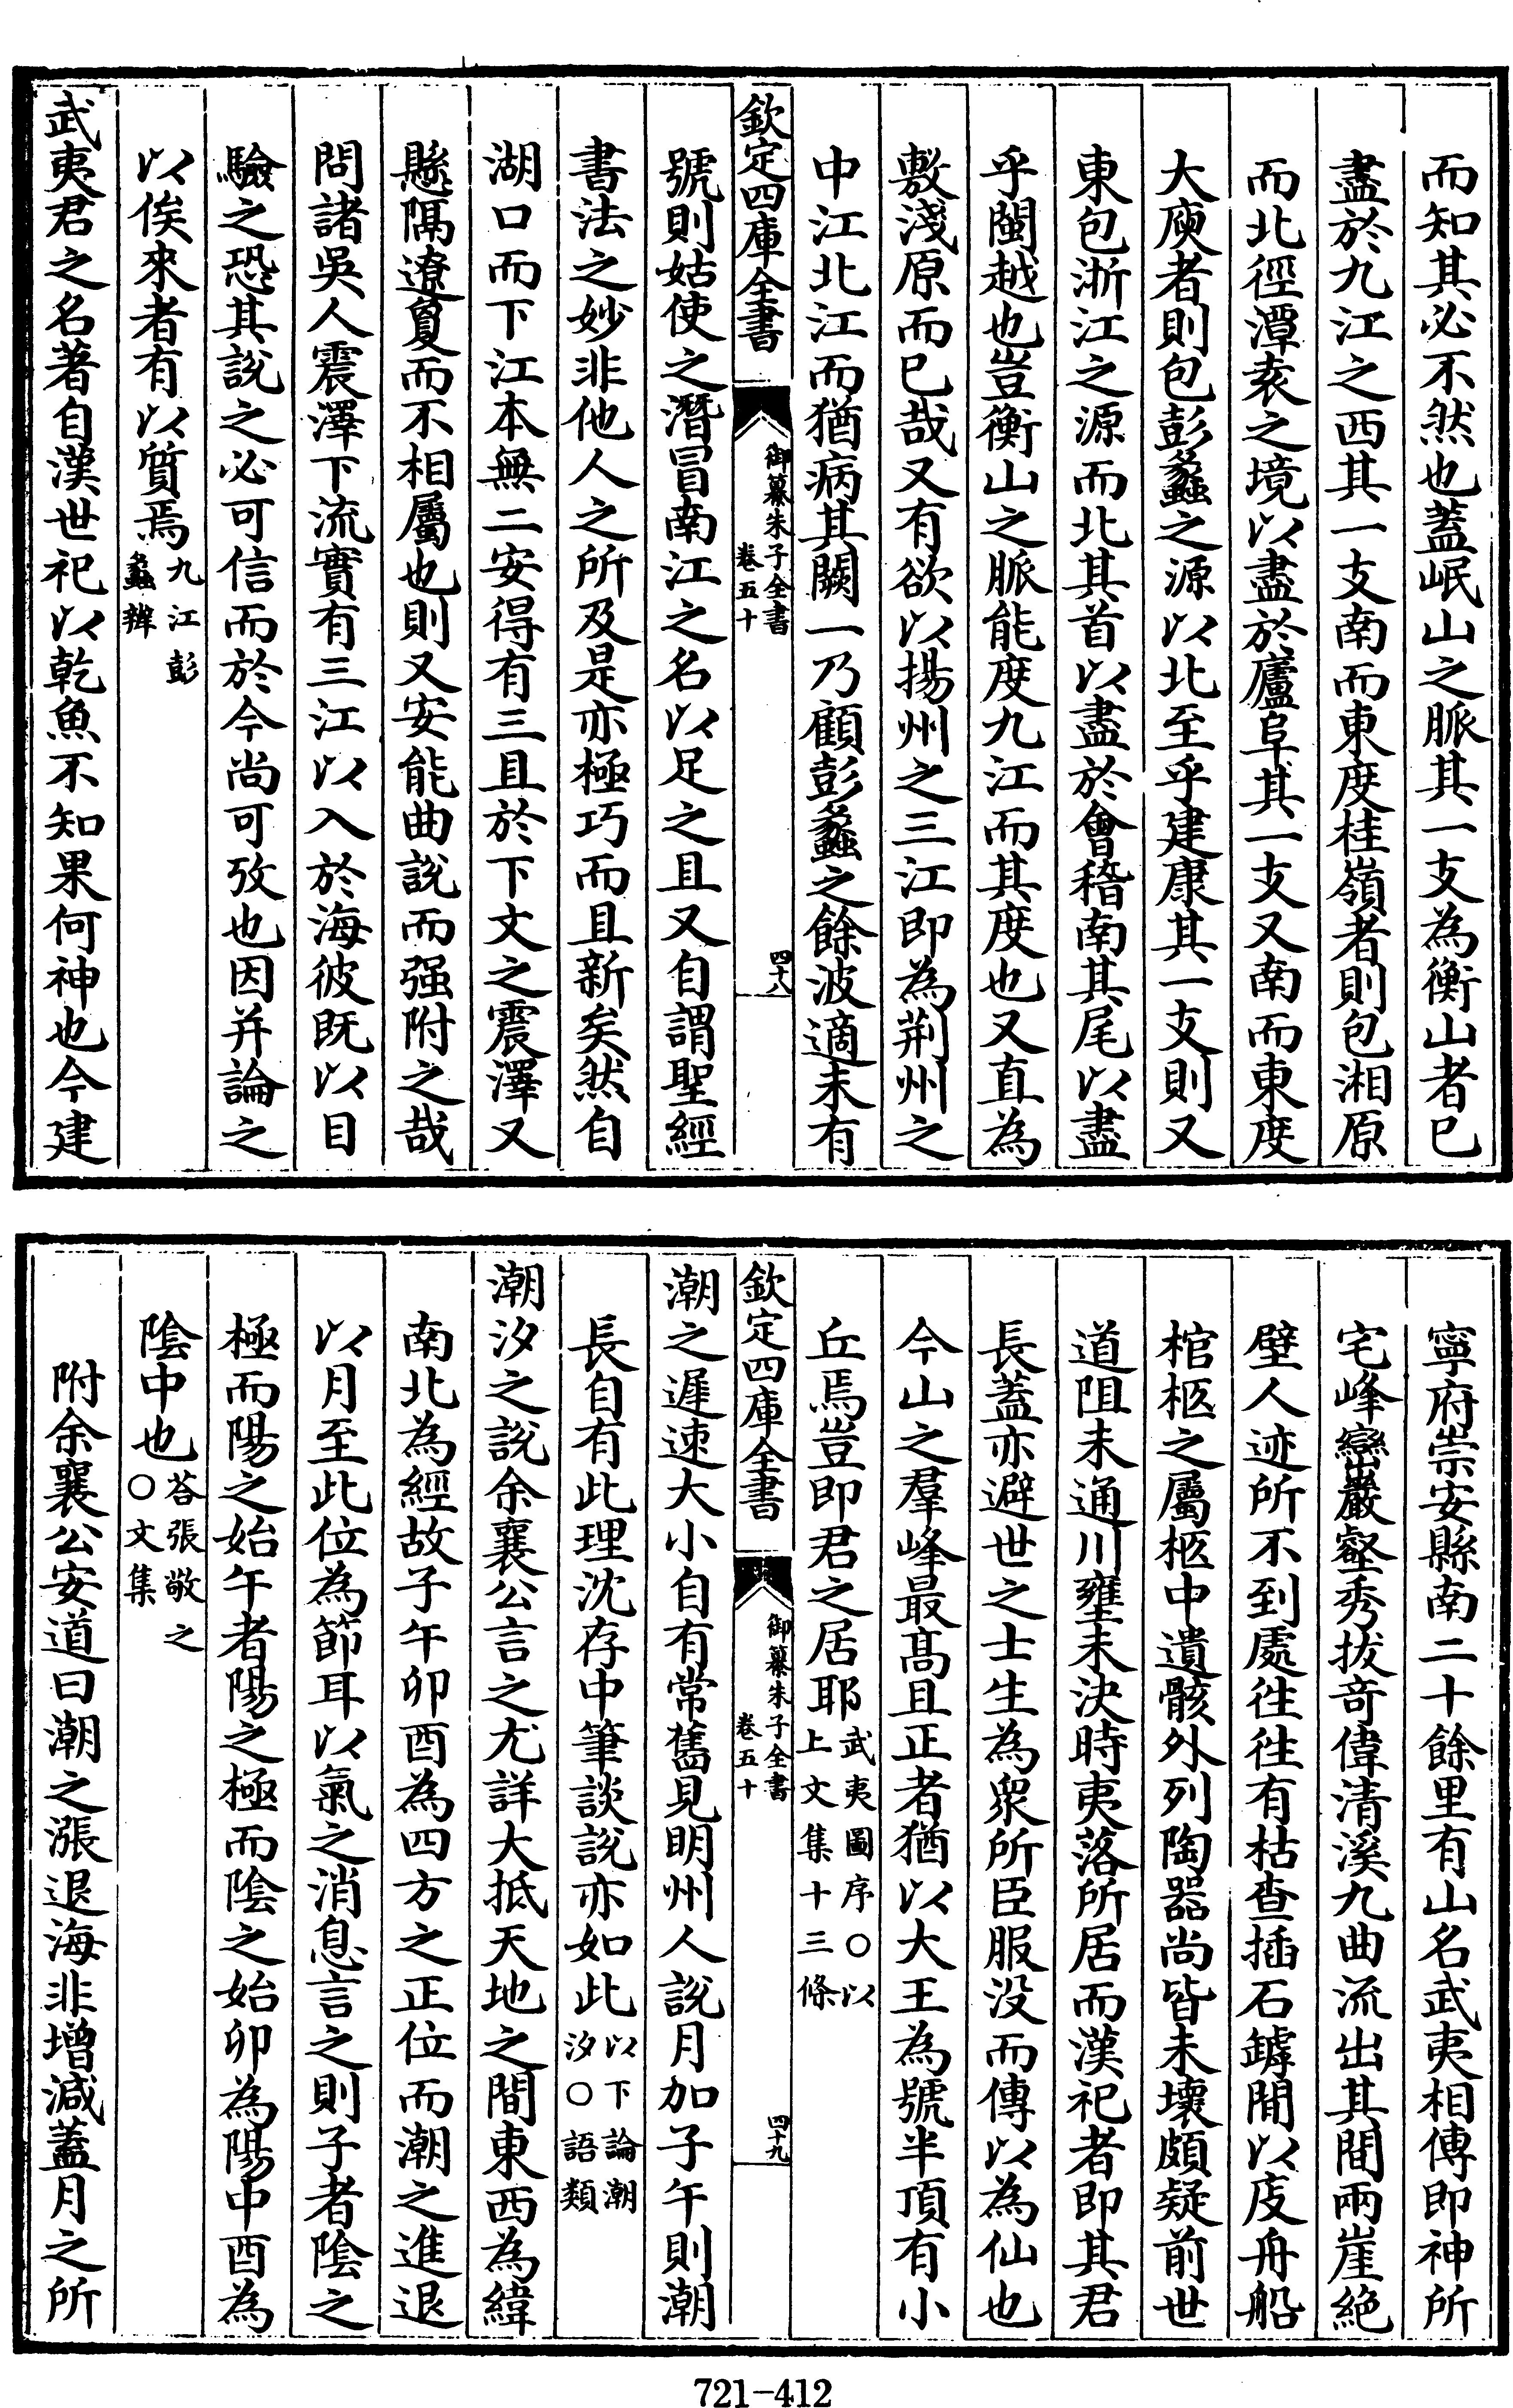 而知其必不然也蓋岷山之脈其一支為衡山者已
盡於九江之西其一支南而東度桂嶺者則包湘原
而北徑潭袁之境以盡於廬阜其一支又南而東度
大庾者則包彭蠡之源以北至乎建康其一支則又
東包浙江之源而北其首以盡於會稽南其尾以盡
乎閩越也豈衡山之脈能度九江而其度也又直為
敷淺原而已哉又有欲以揚州之三江即為荆州之
中江北江而猶病其闕一乃顧彭蠡之餘波適未有
欽定四庫全書
御纂朱子全書
卷五十
四十八
號則姑使之潛冒南江之名以足之且又自謂聖經
書法之妙非他人之所及是亦極巧而且新矣然自
湖口而下江本無二安得有三且於下文之震澤又
懸隔遼敻而不相屬也則又安能曲說而强附之哉
問諸吳人震澤下流實有三江以入於海彼既以目
驗之恐其說之必可信而於今尚可攷也因并論之
以俟來者有以質焉九江彭
蠡辨
武夷君之名著自漢世祀以乾魚不知果何神也今建
寧府崇安縣南二十餘里有山名武夷相傳即神所
宅峰巒巖壑秀拔奇偉清溪九曲流出其間兩崖絶
壁人迹所不到處往往有枯查插石罅間以庋舟船
棺柩之屬柩中遺骸外列陶器尚皆未壞頗疑前世
道阻未通川壅未決時夷落所居而漢祀者即其君
長蓋亦避世之士生為衆所臣服没而傳以為仙也
今山之羣峰最高且正者猶以大王為號半頂有小
丘焉豈即君之居耶武夷圖序○以
上文集十三條
欽定四庫全書
御纂朱子全書
卷五十
四十九
潮之遲速大小自有常舊見明州人說月加子午則潮
長自有此理沈存中筆談說亦如此以下論潮
汐○語類
潮汐之說余襄公言之尤詳大抵天地之間東西為緯
南北為經故子午卯酉為四方之正位而潮之進退
以月至此位為節耳以氣之消息言之則子者隂之
極而陽之始午者陽之極而隂之始卯為陽中酉為
隂中也荅張敬之
○文集
附余襄公安道曰潮之漲退海非增減蓋月之所
721-412